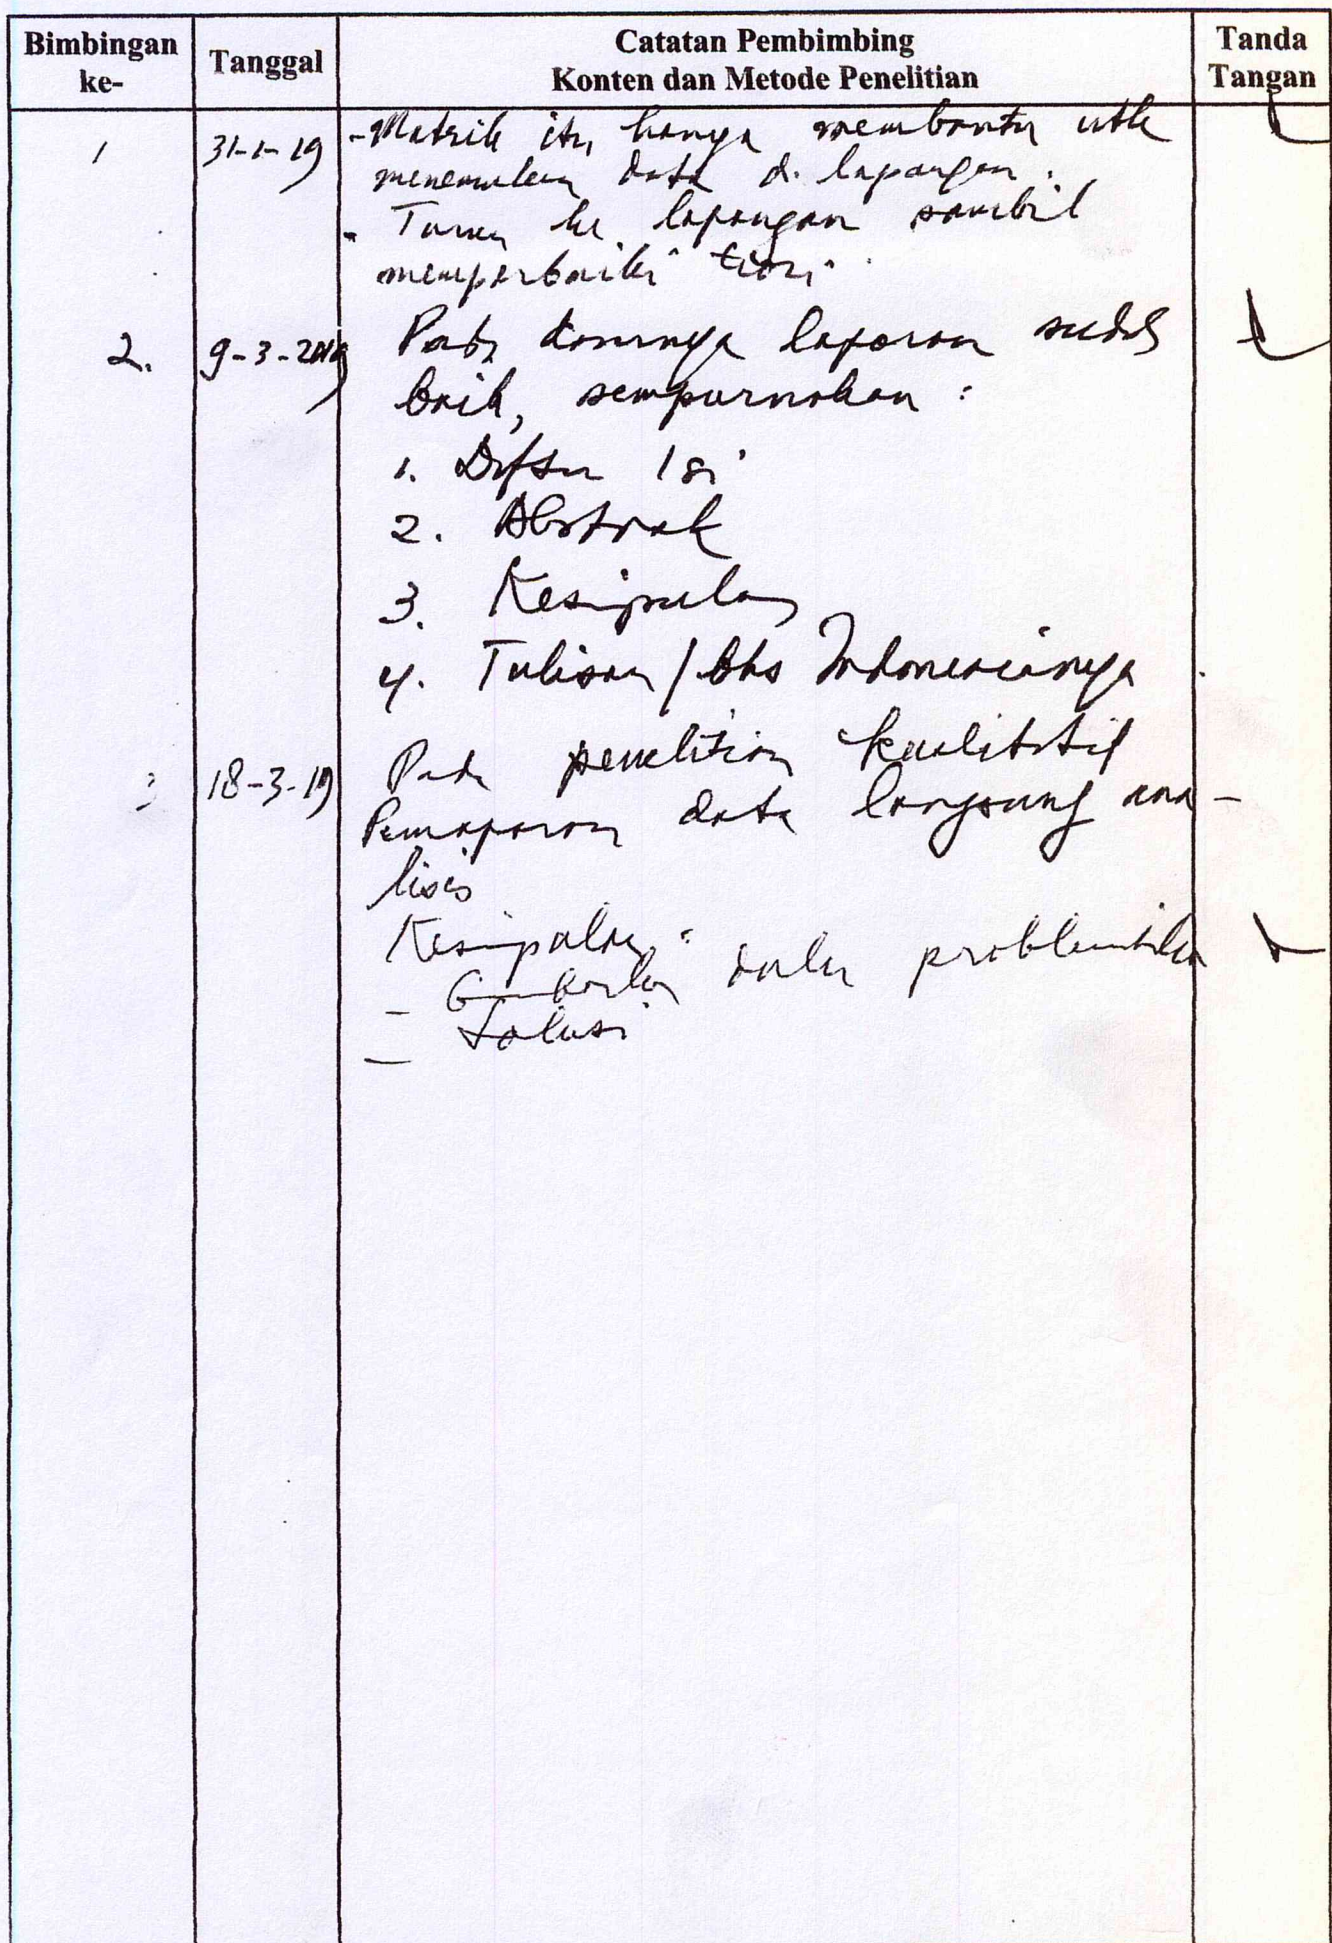 Bimbingan ke-
Tanggal
Catatan Pembimbing
Konten dan Metode Penelitian
Tanda Tangan
1
31-1-19
- Matrik itu hanya membantu utk
menemukan data di lapangan.
- Turun ke lapangan sambil
memperbaiki teori.
2.
9-3-2019
Pada dasarnya laporan sudah
baik, sempurnakan :
1. Daftar Isi
2. Abstrak
3. Kesimpulan
4. Tulisan / bhs Indonesianya
3
18-3-19
Pada penelitian kualitatif
Pemaparan data langsung ana-
lisis
Kesimpulan :
- problematika
- Solusi